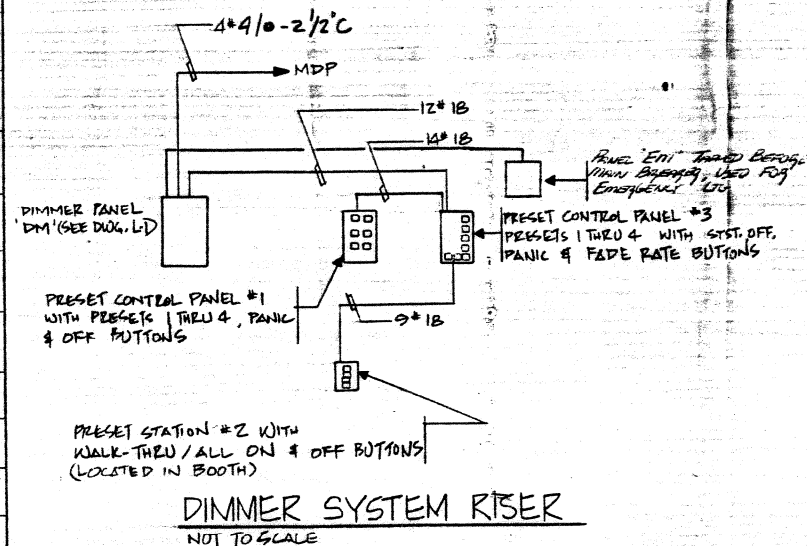 4#4/0-2 1/2"C
MDP
12#18
14#18
PANEL "EM" TAPPED BEFORE
MAIN BREAKER, USED FOR
EMERGENCY LTG
DIMMER PANEL
'DM' (SEE DWG. L-1)
PRESET CONTROL PANEL #3
PRESETS 1 THRU 4 WITH SYST. OFF,
PANIC & FADE RATE BUTTONS
PRESET CONTROL PANEL #1
WITH PRESETS 1 THRU 4, PANIC
& OFF BUTTONS
9#18
PRESET STATION #2 WITH
WALK-THRU/ALL ON & OFF BUTTONS
(LOCATED IN BOOTH)
DIMMER SYSTEM RISER
NOT TO SCALE